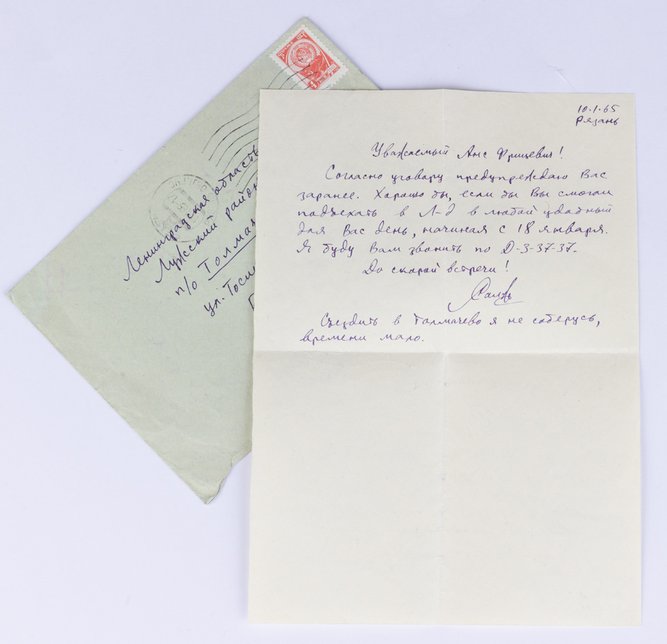 Ленинградская область
Лужский район
п/о Толмач
ул. Госп
10.1.65
Рязань
Уважаемый Анс Фрицевич!
Согласно уговору предупреждаю Вас
заранее. Хорошо бы, если бы Вы смогли
подъехать в Л-д в любой удобный
для Вас день, начиная с 18 января.
Я буду Вам звонить по Д-3-37-37.
До скорой встречи!
Съездить в Толмачево я не соберусь,
времени мало.